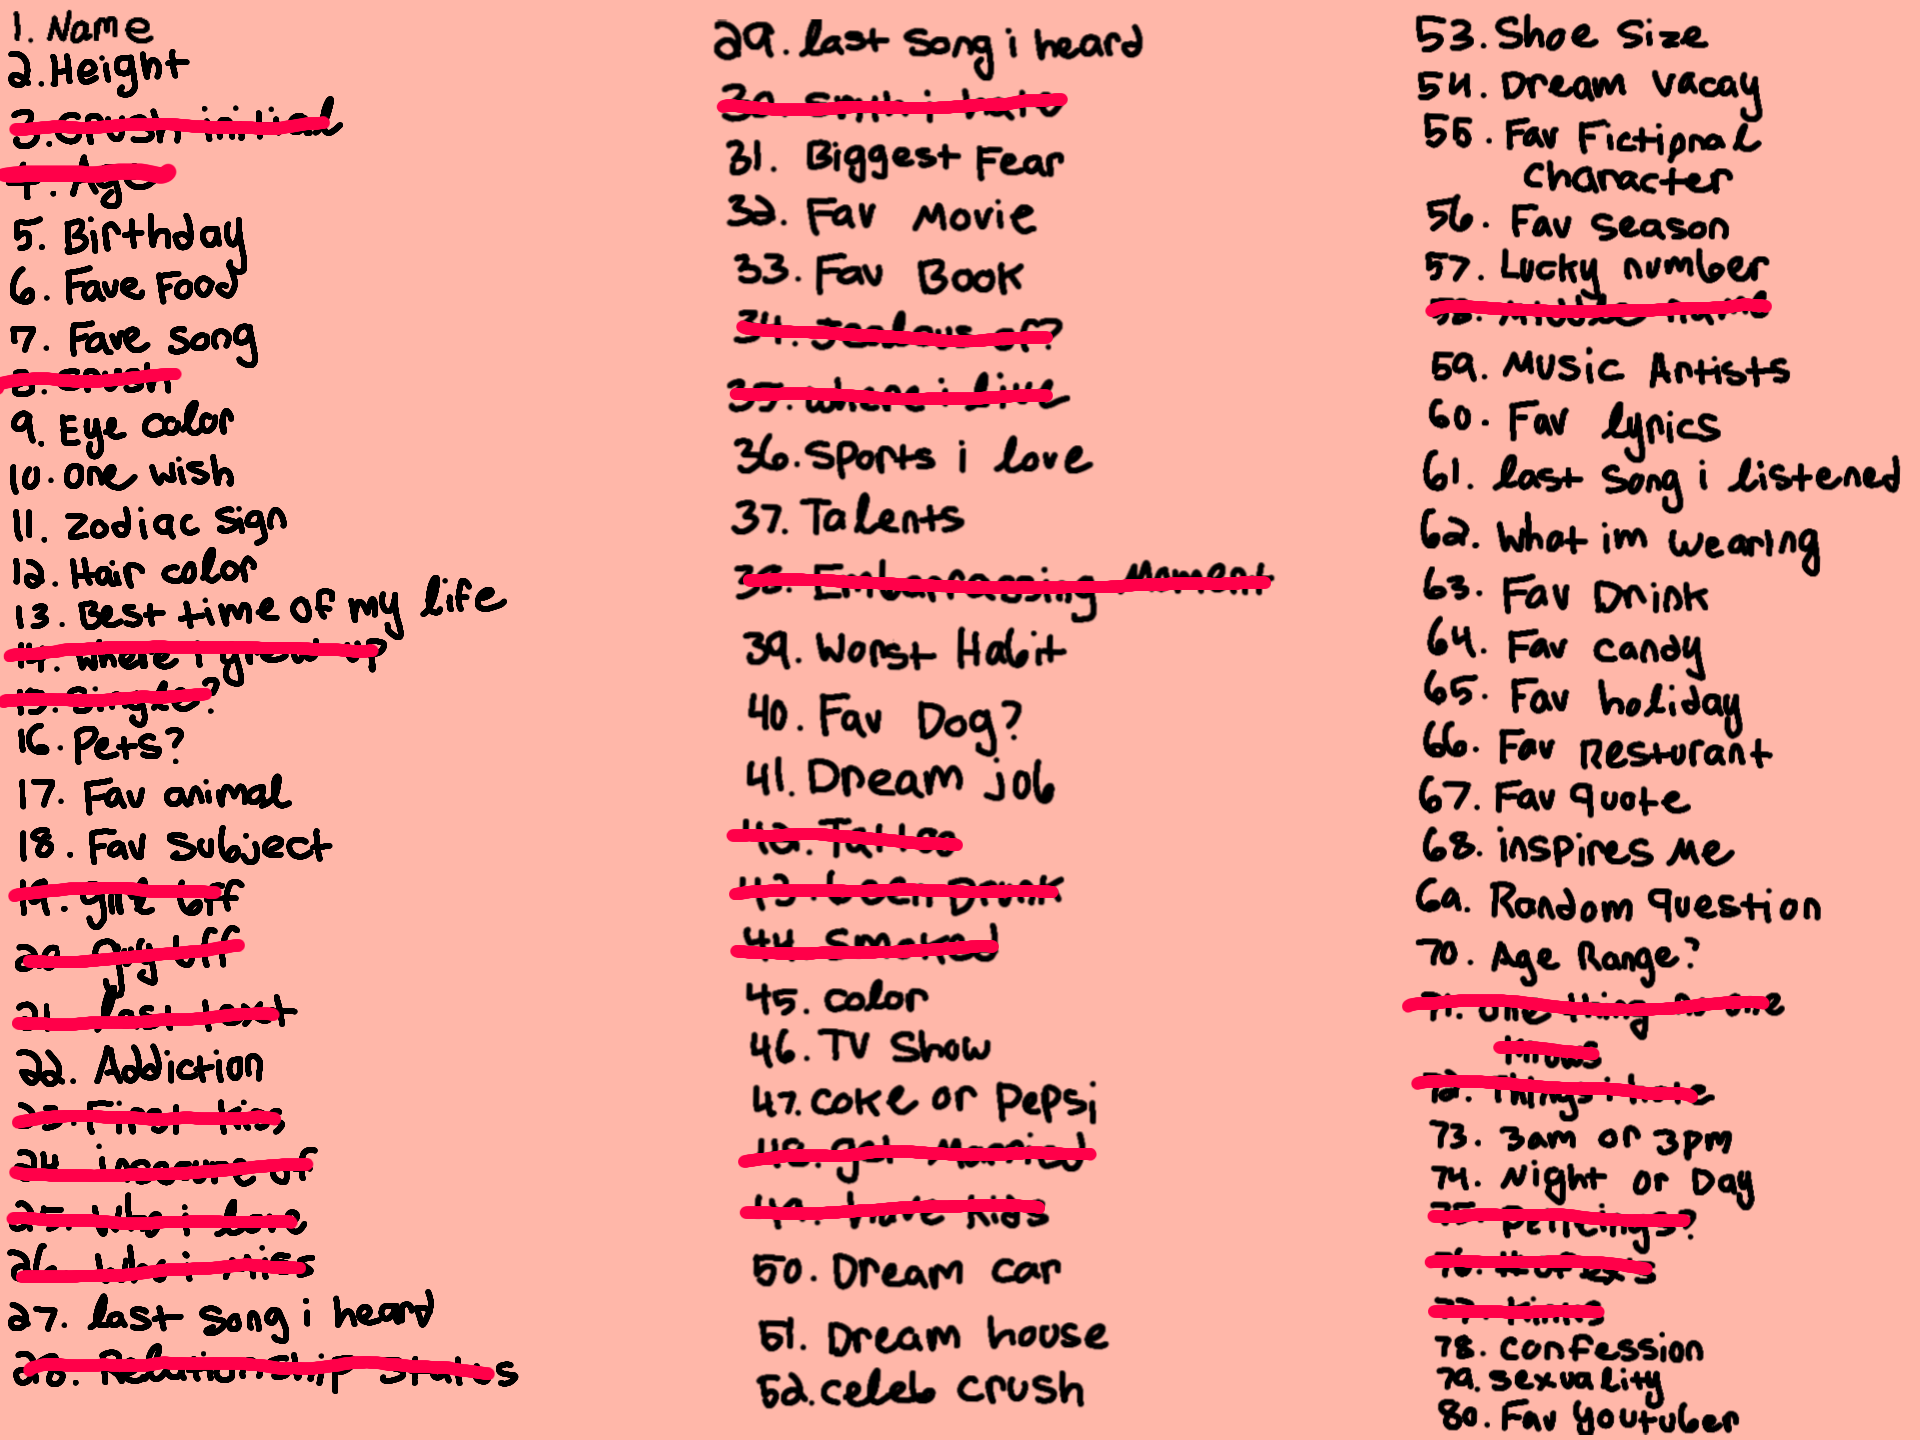 1. Name
2. Height
3. Crush initial
4. Age
5. Birthday
6. Fave Food
7. Fave song
8. Crush
9. Eye color
10. one wish
11. Zodiac Sign
12. Hair color
13. Best time of my life
14. where i grew up?
15. Single?
16. Pets?
17. Fav animal
18. Fav Subject
19. off
20. Guy off
21. last text
22. Addiction
23. First kiss
24. insecure of
25. Who i love
26. Who i miss
27. last song i heard
28. Relationship Status
29. last song i heard
30. smth i hate
31. Biggest Fear
32. Fav Movie
33. Fav Book
34. Jealous of?
35. where i live
36. Sports i love
37. Talents
38. Embarrassing Moment
39. Worst Habit
40. Fav Dog?
41. Dream job
42. Tattoo
43. been Drunk
44. Smoked
45. color
46. TV Show
47. Coke or Pepsi
48. get Married
49. have kids
50. Dream car
51. Dream house
52. celeb crush
53. Shoe Size
54. Dream vacay
55. Fav Fictional
Character
56. Fav season
57. Lucky number
58. Middle name
59. Music Artists
60. Fav lyrics
61. last song i listened
62. What im wearing
63. Fav Drink
64. Fav candy
65. Fav holiday
66. Fav Resturant
67. Fav quote
68. inspires Me
69. Random question
70. Age Range?
71. one thing no one
knows
72. Things i hate
73. 3am or 3pm
74. Night or Day
75. Peircings?
76.
77.
78. confession
79. sexuality
80. Fav Youtuber